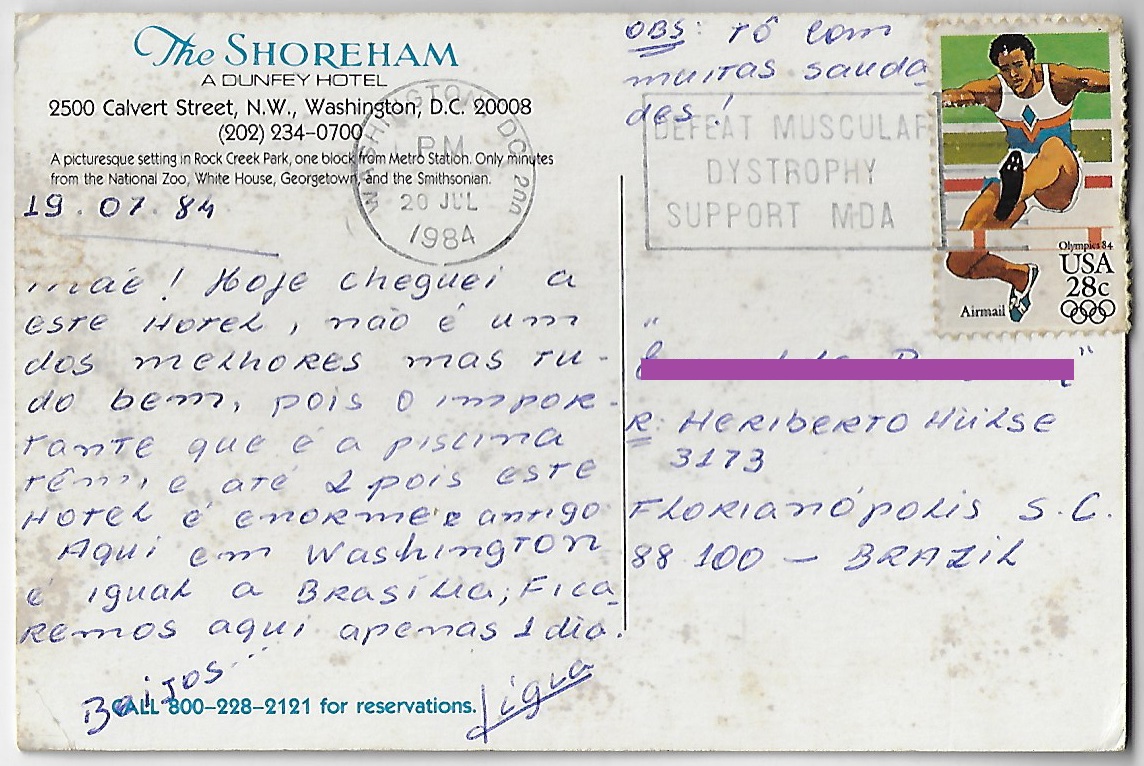 The SHOREHAM
A DUNFEY HOTEL
2500 Calvert Street, N.W., Washington, D.C. 20008
(202) 234-0700
A picturesque setting in Rock Creek Park, one block from Metro Station. Only minutes
from the National Zoo, White House, Georgetown, and the Smithsonian.
19.07.84
WASHINGTON DC 200
PM
20 JUL
1984
mãe! Hoje cheguei a
este Hotel, não é um
dos melhores mas tu-
do bem, pois o impor-
tante que é a piscina
têm, e até 2 pois este
Hotel é enorme e antigo
Aqui em Washington
é igual a Brasília; Fica
remos aqui apenas 1 dia.
Beijos...
Lígia
CALL 800-228-2121 for reservations.
OBS: Tô com
muitas sauda
des!
DEFEAT MUSCULAR
DYSTROPHY
SUPPORT MDA
Olympics 84
USA
28c
Airmail
R: Heriberto Hülse
3173
Florianópolis S.C.
88.100 — BRAZIL